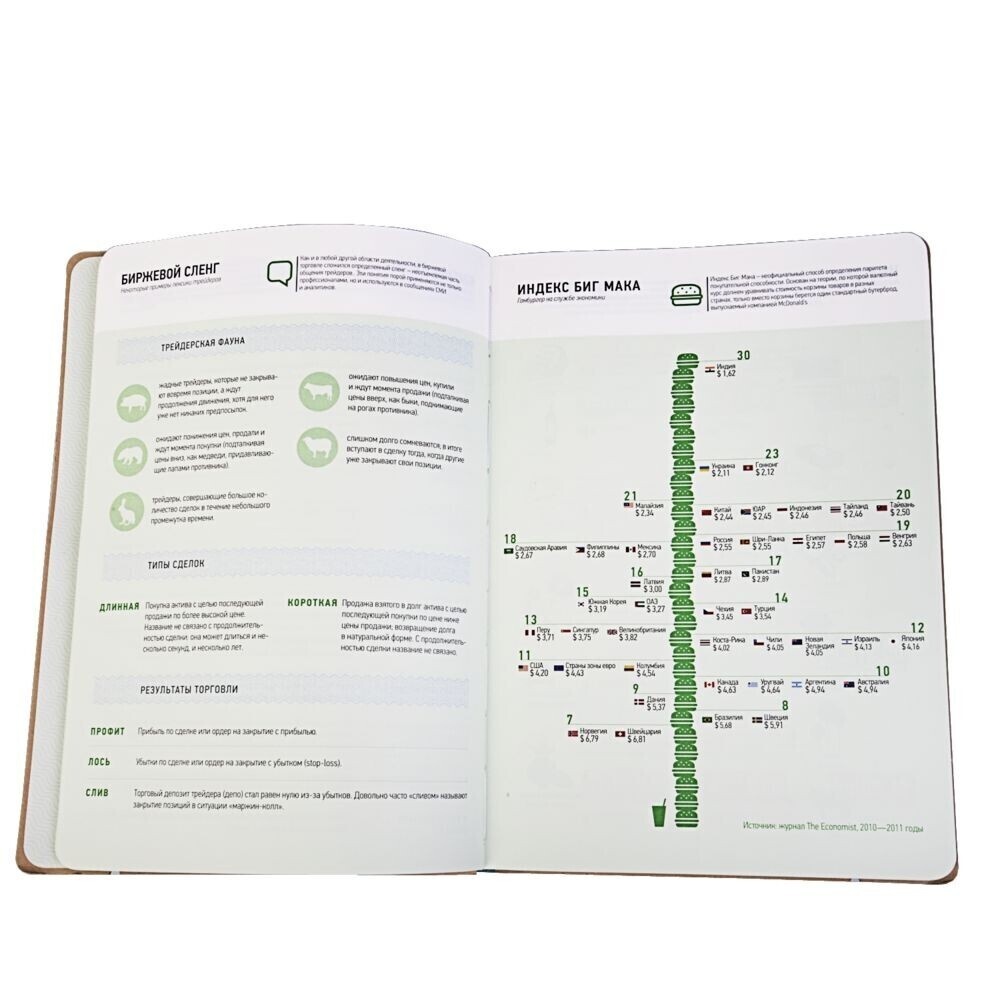 БИРЖЕВОЙ СЛЕНГ
Некоторые примеры лексики трейдеров
Как и в любой другой области деятельности, в биржевой
торговле сложился определенный сленг – неотъемлемая часть
общения трейдеров. Эти понятия порой применяются не только
профессионалами, но и используются в сообщениях СМИ
и аналитиков.
ТРЕЙДЕРСКАЯ ФАУНА
жадные трейдеры, которые не закрыва-
ют вовремя позиции, а ждут
продолжения движения, хотя для него
уже нет никаких предпосылок.
ожидают повышения цен, купили
и ждут момента продажи (подталкивая
цены вверх, как быки, поднимающие
на рогах противника).
ожидают понижения цен, продали и
ждут момента покупки (подталкивая
цены вниз, как медведи, придавливаю-
щие лапами противника).
слишком долго сомневаются, в итоге
вступают в сделку тогда, когда другие
уже закрывают свои позиции.
трейдеры, совершающие большое ко-
личество сделок в течение небольшого
промежутка времени.
ТИПЫ СДЕЛОК
ДЛИННАЯ Покупка актива с целью последующей
продажи по более высокой цене.
Название не связано с продолжитель-
ностью сделки: она может длиться и не-
сколько секунд, и несколько лет.
КОРОТКАЯ Продажа взятого в долг актива с целью
последующей покупки по цене ниже
цены продажи; возвращение долга
в натуральной форме. С продолжитель-
ностью сделки название не связано.
РЕЗУЛЬТАТЫ ТОРГОВЛИ
ПРОФИТ Прибыль по сделке или ордер на закрытие с прибылью.
ЛОСЬ Убытки по сделке или ордер на закрытие с убытком (stop-loss).
СЛИВ Торговый депозит трейдера (депо) стал равен нулю из-за убытков. Довольно часто «сливом» называют
закрытие позиций в ситуации «маржин-колл».
ИНДЕКС БИГ МАКА
Гамбургер на службе экономики
Индекс Биг Мака – неофициальный способ определения паритета
покупательной способности. Основан на теории, по которой валютный
курс должен уравнивать стоимость корзины товаров в разных
странах, только вместо корзины берется один стандартный бутерброд,
выпускаемый компанией McDonald's
30
Индия
$ 1,62
23
Украина Гонконг
$ 2,11 $ 2,12
21
Малайзия
$ 2,34
20
Китай ЮАР Индонезия Тайланд Тайвань
$ 2,44 $ 2,45 $ 2,46 $ 2,46 $ 2,50
19
Россия Шри-Ланка Египет Польша Венгрия
$ 2,55 $ 2,55 $ 2,57 $ 2,58 $ 2,63
18
Саудовская Аравия Филиппины Мексика
$ 2,67 $ 2,68 $ 2,70
17
Литва Пакистан
$ 2,87 $ 2,89
16
Латвия
$ 3,00
15
Южная Корея ОАЭ
$ 3,19 $ 3,27
14
Чехия Турция
$ 3,45 $ 3,54
13
Перу Сингапур Великобритания
$ 3,71 $ 3,75 $ 3,82
12
Коста-Рика Чили Новая Зеландия Израиль Япония
$ 4,02 $ 4,05 $ 4,05 $ 4,13 $ 4,16
11
США Страны зоны евро Колумбия
$ 4,20 $ 4,43 $ 4,54
10
Канада Уругвай Аргентина Австралия
$ 4,63 $ 4,64 $ 4,94 $ 4,94
9
Дания
$ 5,37
8
Бразилия Швеция
$ 5,68 $ 5,91
7
Норвегия Швейцария
$ 6,79 $ 6,81
Источник: журнал The Economist, 2010—2011 годы